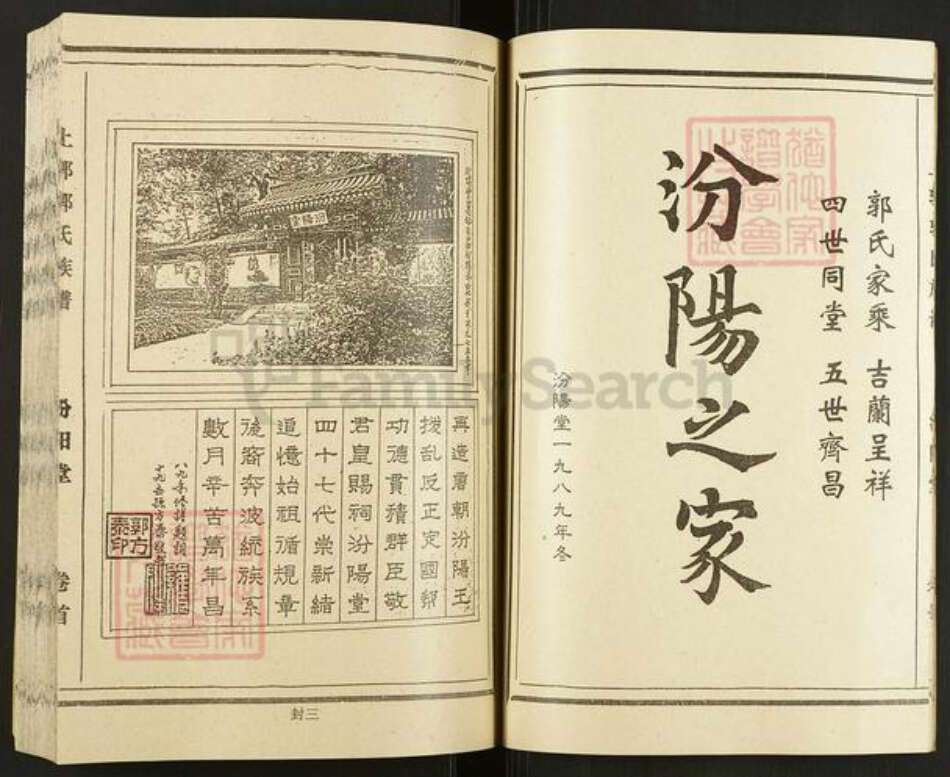 郭氏家乘 吉蘭呈祥
四世同堂 五世齊昌
汾陽之家
汾陽堂一九八九年冬
再造唐朝汾陽王
撥乱反正定國邦
功德貫積群臣敬
君皇賜祠汾陽堂
四十七代崇新緒
追憶始祖循規章
後裔奔波統族系
數月辛苦萬年昌
郭方泰印
郭氏族譜
汾阳堂
卷首
封三
FamilySearch